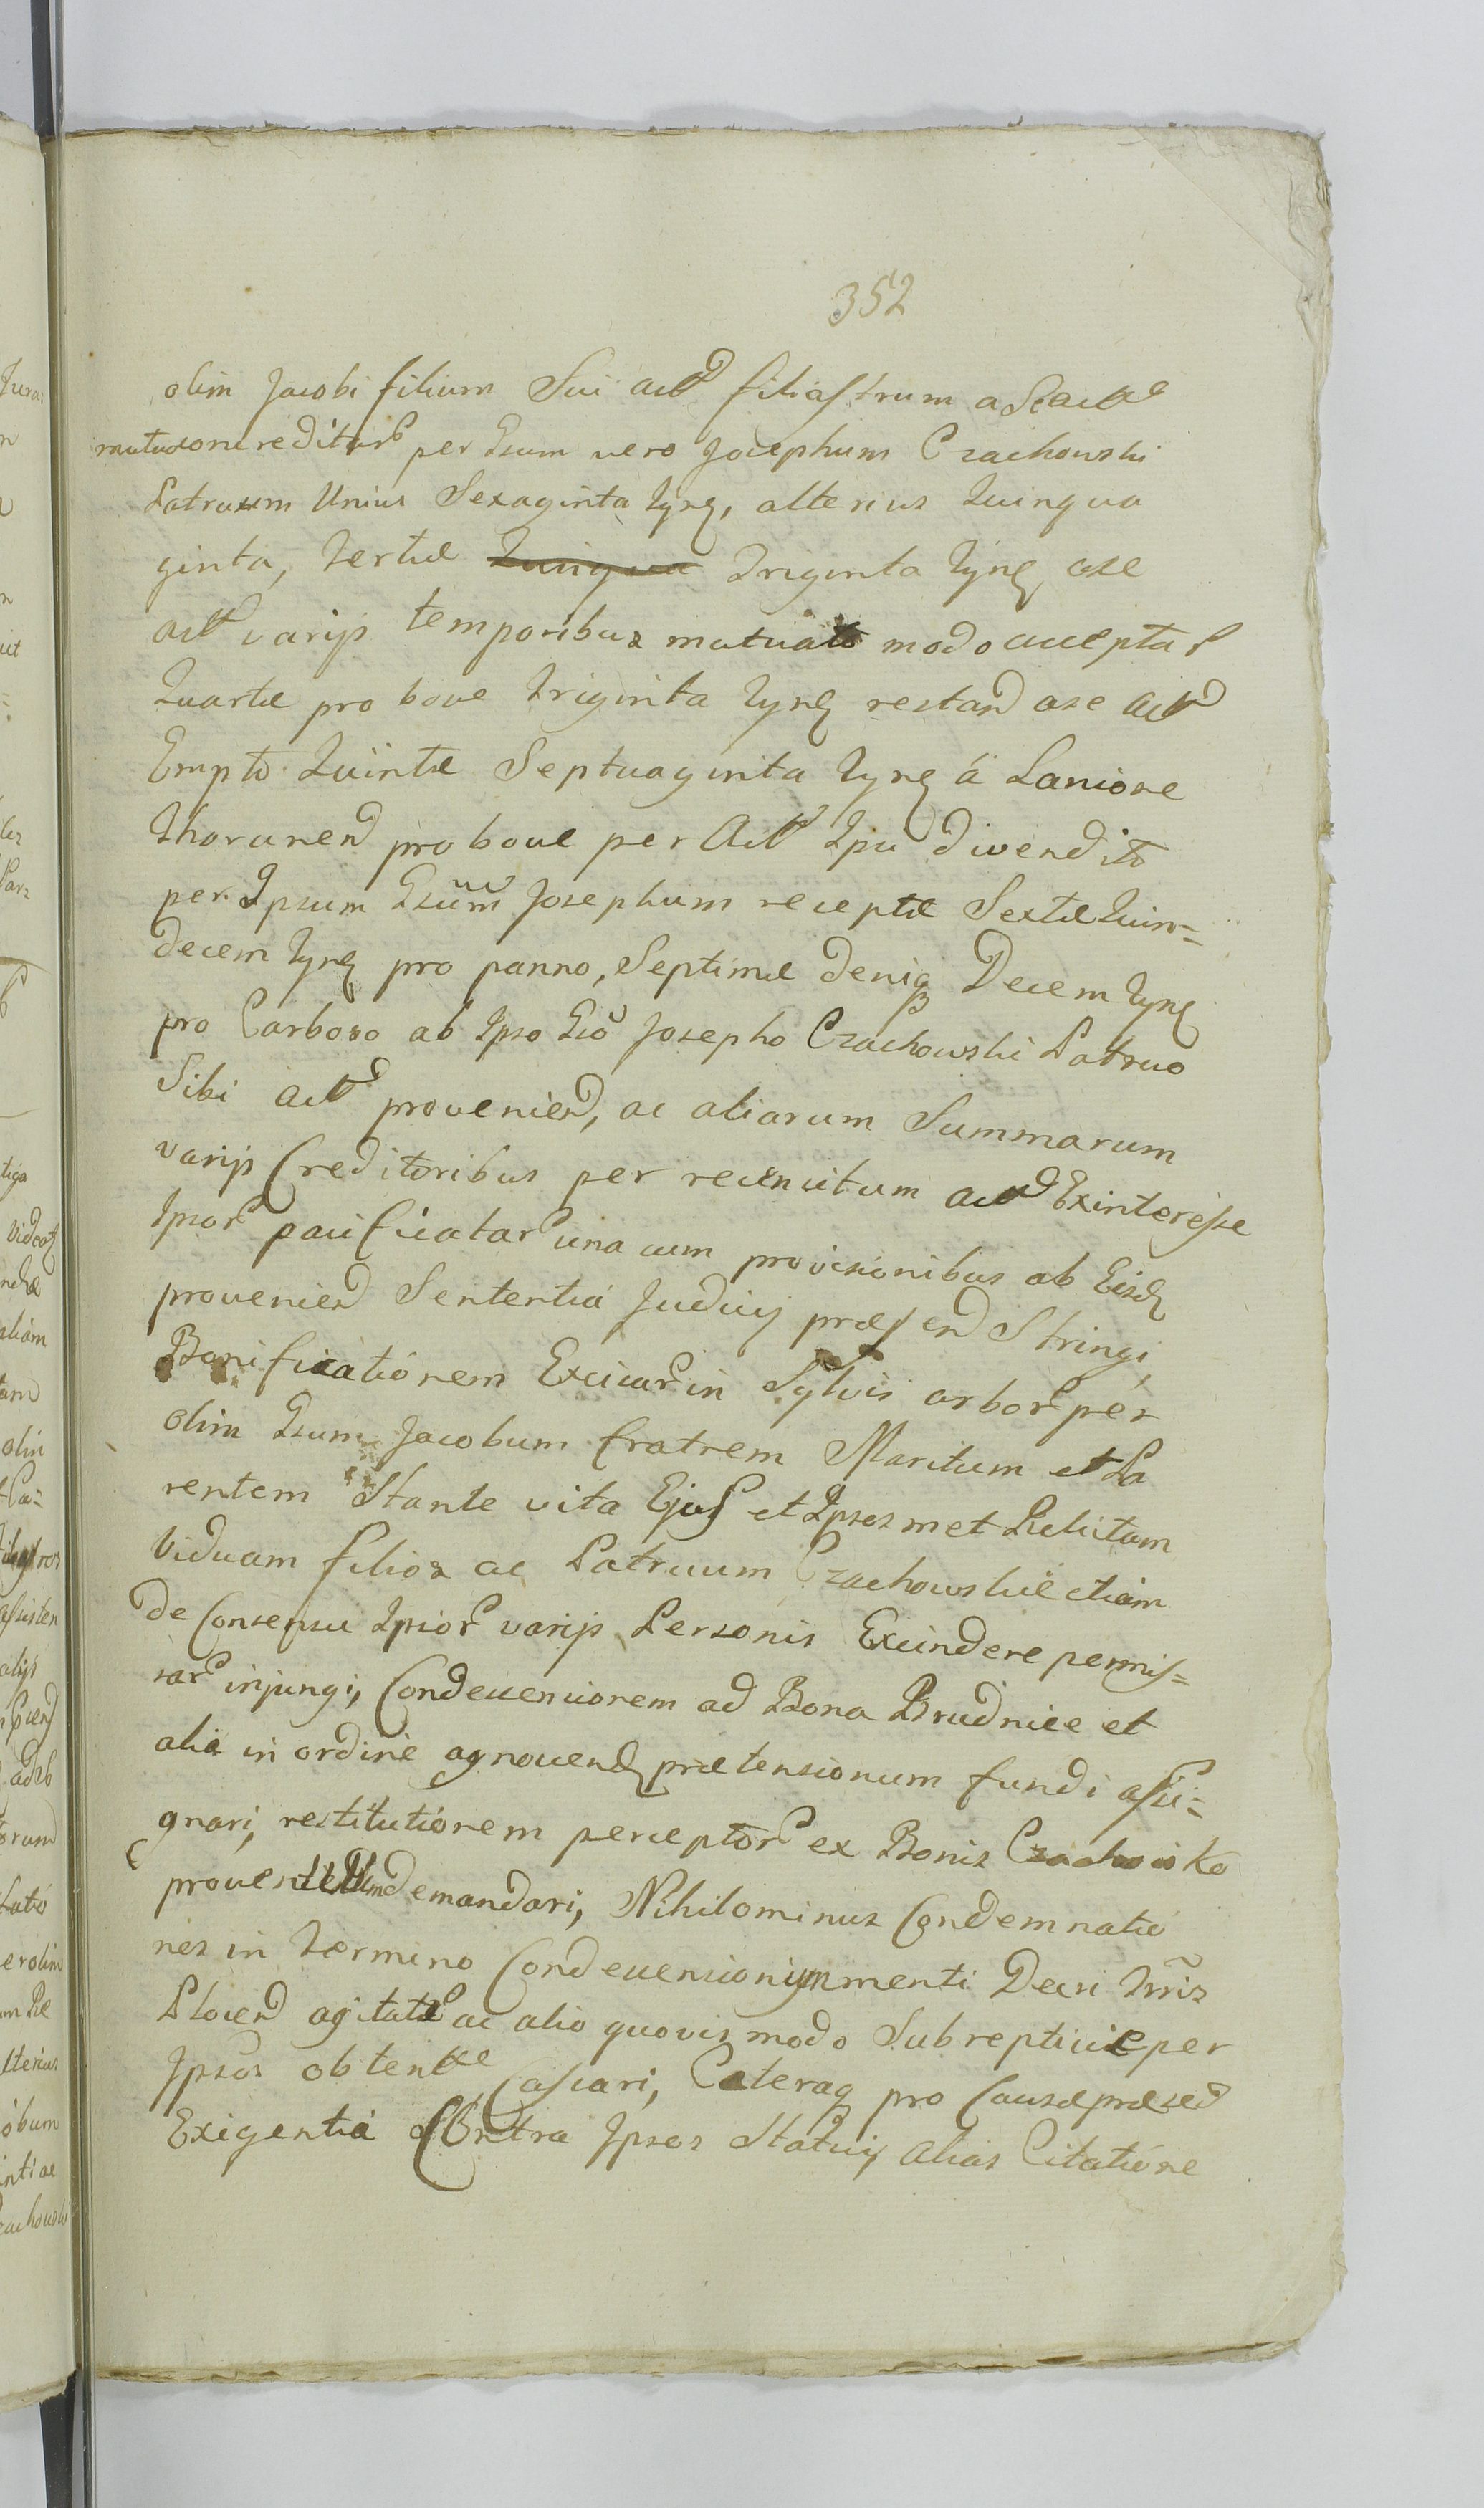 352
olim Jacobi filium Sui act filiastrum a Se actae
mutuo creditar per Gsum vero Josephum Czachowski
Patruum Unius Sexaginta Tynf, alterius Quinqua
ginta, Tertiae Triginta Tynf, ase
act varijs temporibus mutuato modo acceptar
Quartae pro bove Triginta Tynf restand ase act
Empto Quintae Septuaginta Tynf á Lanione
Thorunen pro bove per Act Ipsu divendito
per Ipsum Gsum Josephum receptae Sextae Quin=
decem Tynf pro panno, Septimae deniq Decem Tynf
pro Carbono ab Ipso Gso Josepho Czachowski Patruo
Sibi act provenien, ac aliarum Summarum
varijs Creditoribus per recensitum act Exinteresse
Ipsor pacificatar una cum provisionibus ab Eisd
provenien Sententiá Judicij praesen Stringi,
Bonificationem Excisar in Sylvis arbor per
olim Gsum Jacobum fratrem Maritum et Pa
rentem Stante vita Ejus et Ipsosmet Relictam
Viduam filios ac Patruum Czachowskie etiam
de Consensu Ipsor varijs Personis Excindere permis=
sar injungi, Condescensionem ad Bona Brudnice et
alia in ordine agnoscend praetensionum fundi assi=
gnari, restitutionem perceptor ex Bonis Czachowko
proventuum demandari, Nihilominus Condemnatio
nes in Termino Condescensionis menti Decri Trris
Plocen agitatae ac alio quovis modo Subrepticie per
Ipsos obtentae Cassari, Caeteraq pro Causae praesen
Exigentiá Contra Ipsos Statui, alias Citatione